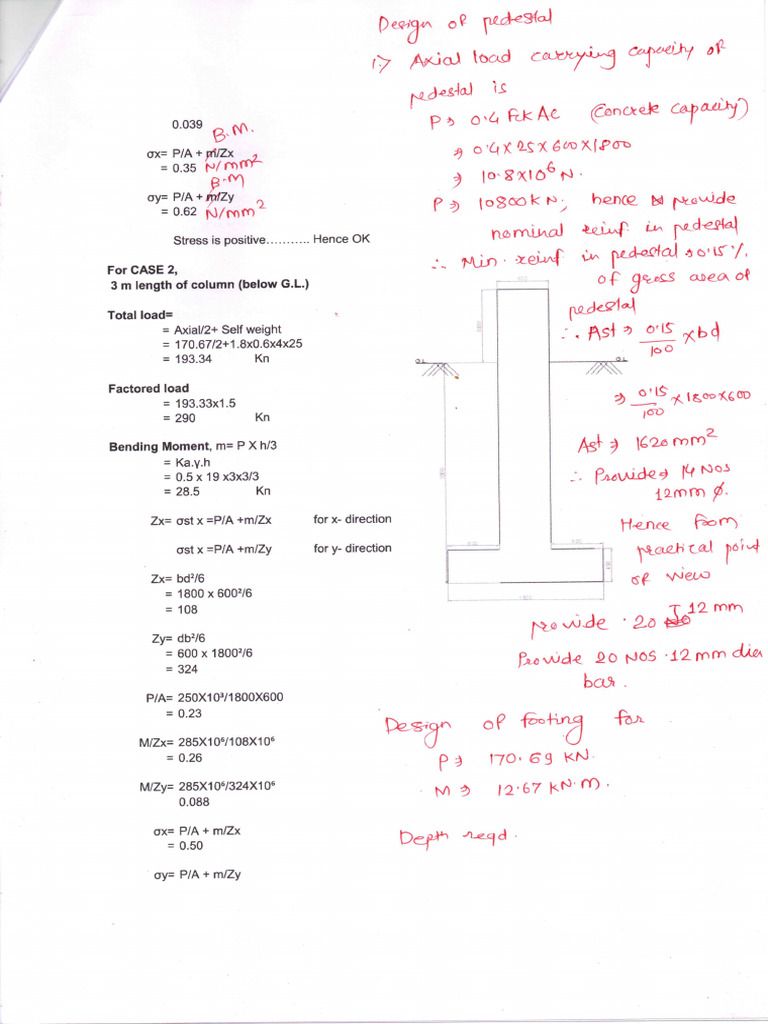 0.039
B.M.
σx= P/A + m/Zx
= 0.35 N/mm²
B.M
σy= P/A + m/Zy
= 0.62 N/mm²
Stress is positive……….. Hence OK
For CASE 2,
3 m length of column (below G.L.)
Total load=
= Axial/2+ Self weight
= 170.67/2+1.8x0.6x4x25
= 193.34 Kn
Factored load
= 193.33x1.5
= 290 Kn
Bending Moment, m= P X h/3
= Ka.γ.h
= 0.5 x 19 x3x3/3
= 28.5 Kn
Zx= σst x =P/A +m/Zx for x- direction
σst x =P/A +m/Zy for y- direction
Zx= bd²/6
= 1800 x 600²/6
= 108
Zy= db²/6
= 600 x 1800²/6
= 324
P/A= 250X10³/1800X600
= 0.23
M/Zx= 285X10⁶/108X10⁶
= 0.26
M/Zy= 285X10⁶/324X10⁶
0.088
σx= P/A + m/Zx
= 0.50
σy= P/A + m/Zy
Design of pedestal
1.) Axial load carrying capacity of
pedestal is
P ⇒ 0.4 Fck Ac (Concrete capacity)
⇒ 0.4 x 25 x 600 x 1800
⇒ 10.8 x 10⁶ N.
P ⇒ 10800 KN, hence provide
nominal reinf in pedestal
∴ Min. reinf in pedestal ⇒ 0.15 %
of gross area of
pedestal
∴ Ast ⇒ 0.15/100 x bd
⇒ 0.15/100 x 1800 x 600
Ast ⇒ 1620 mm²
∴ Provide ⇒ 14 Nos
12mm ϕ.
Hence from
practical point
of view
provide . 20 T 12 mm
Provide 20 Nos . 12 mm dia
bar.
Design of footing for
P ⇒ 170.69 KN.
M ⇒ 12.67 KN.M.
Depth reqd.
G.L
G.L